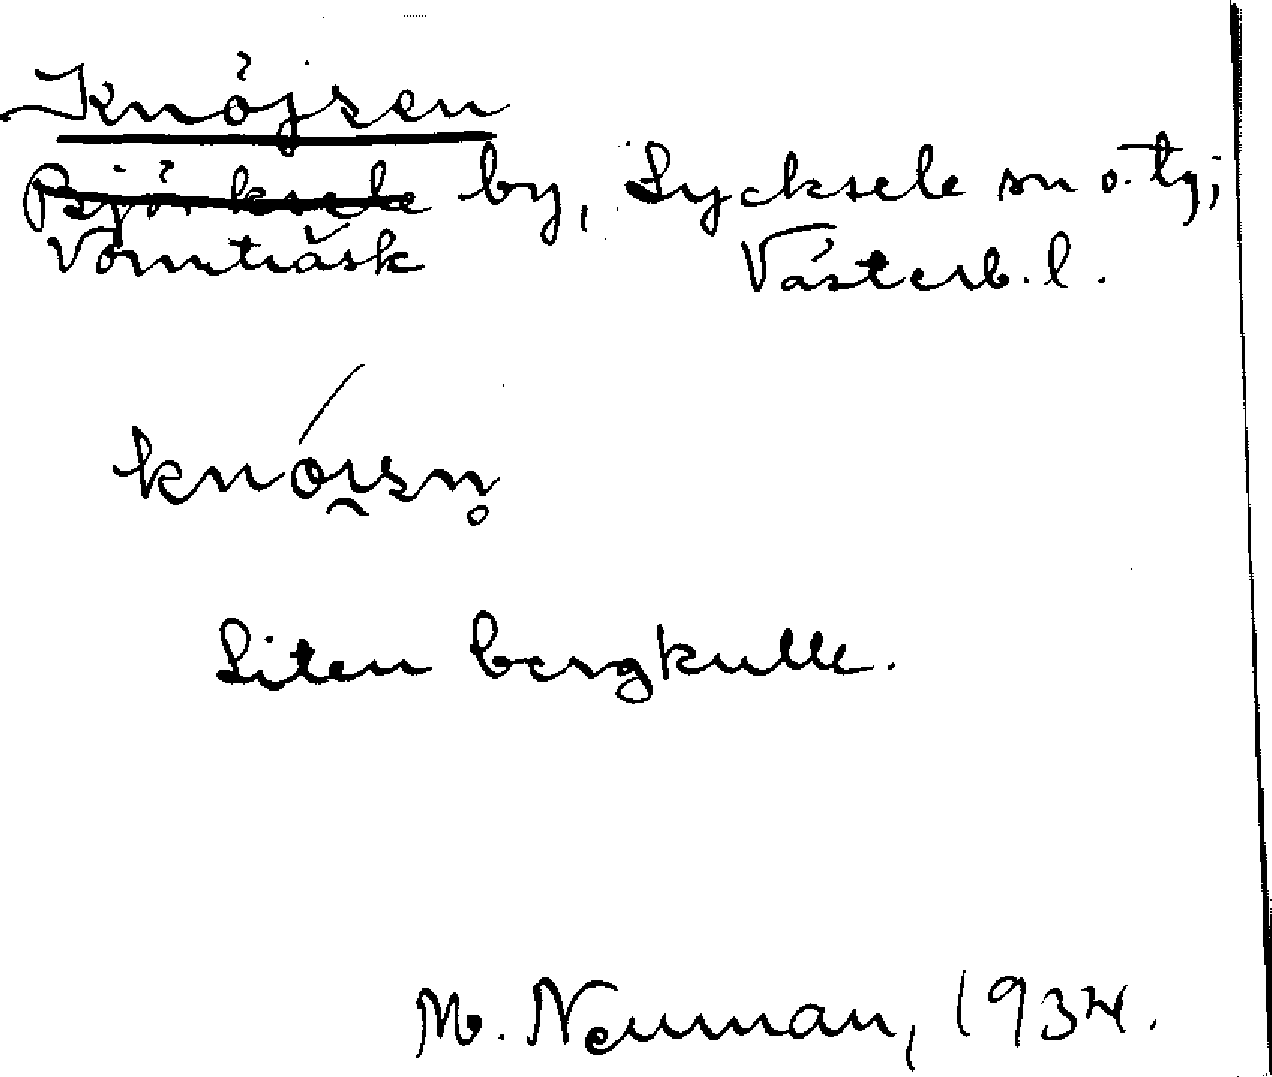 Knöjsen
Bjürksele by, Lycksele sn o. tg;
Vormträsk Västerb. l.
knöisn̥
Liten bergkulle.
M. Neuman, 1934.